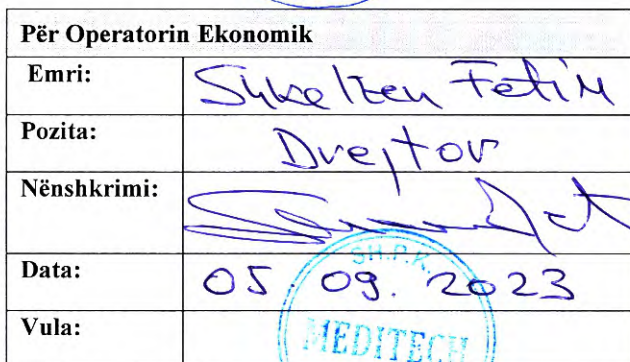 Për Operatorin Ekonomik
Emri: Sykalzen Fetiu
Pozita: Drejtor
Nënshkrimi:
Data: 05. 09. 2023
SH.P.K.
Vula: MEDITECH